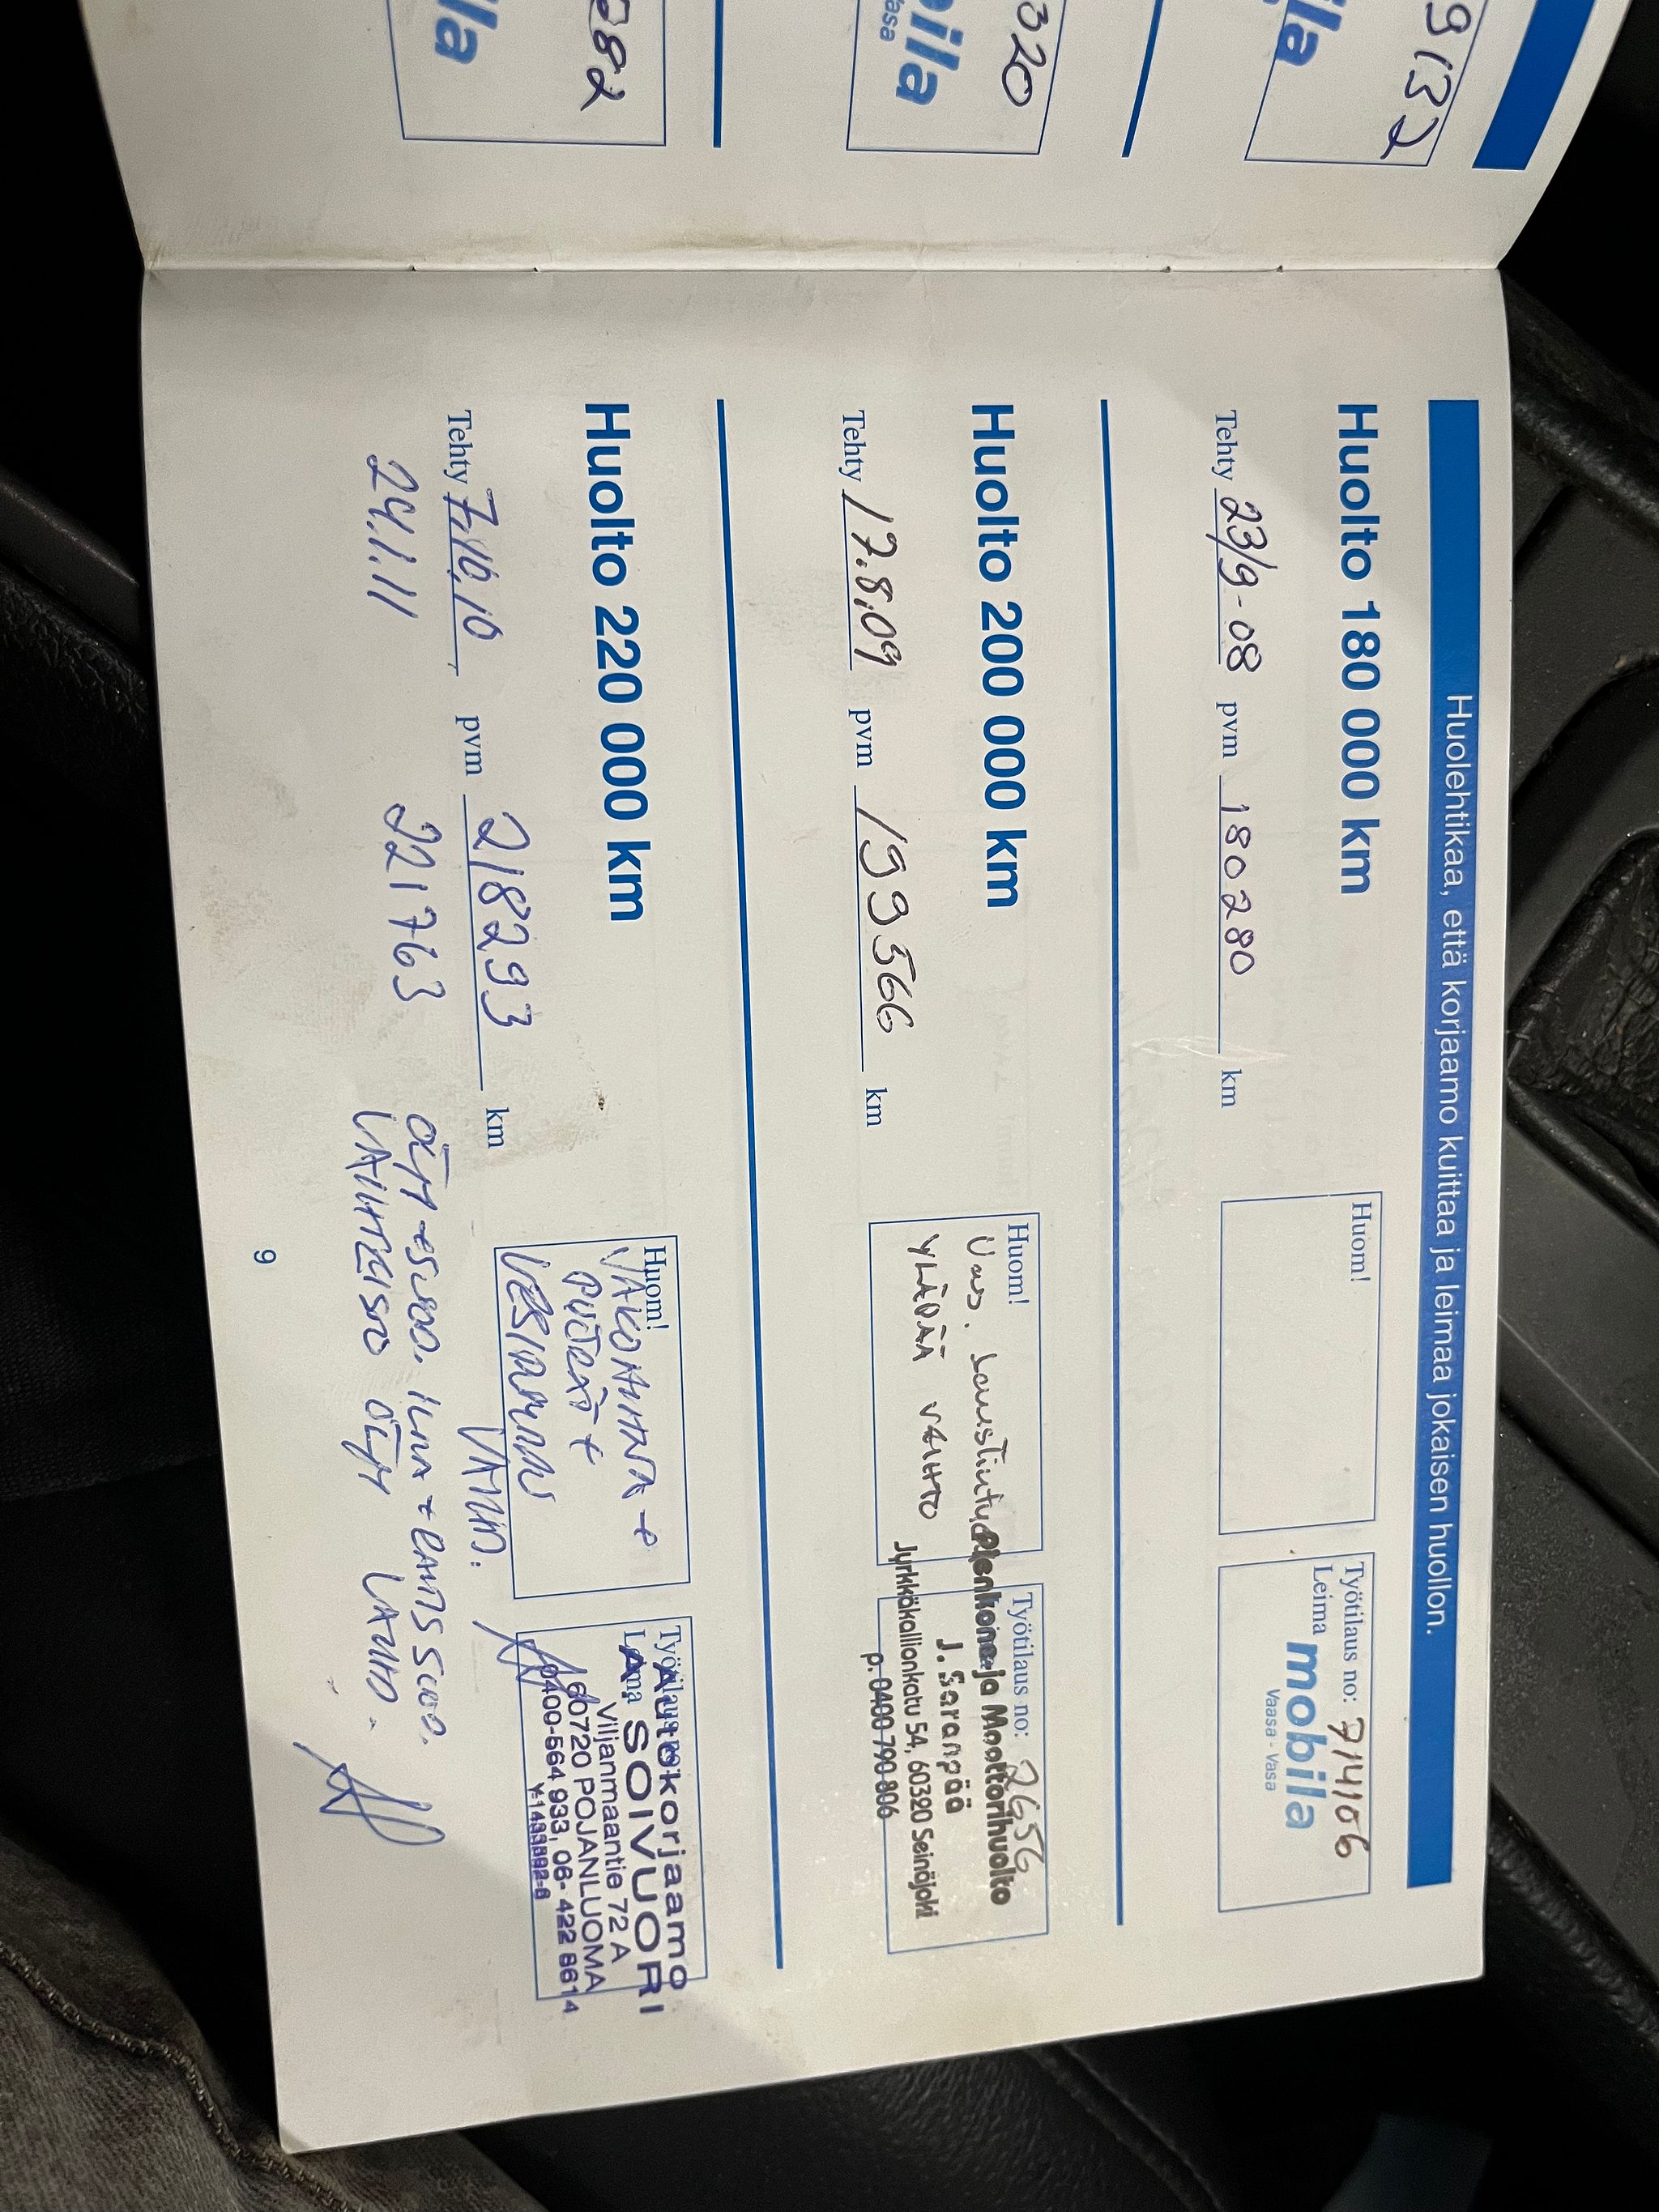 9132
ila
320
ila
asa
282
la
Huolehtikaa, että korjaamo kuittaa ja leimaa jokaisen huollon.
Huolto 180 000 km
Tehty 23/9-08 pvm 180280 km
Huom!
Työtilaus no: 714106
Leima mobila
Vaasa - Vasa
Huolto 200 000 km
Tehty 17.8.09 pvm 199566 km
Huom!
YLÄPÄÄ VAIHTO
Työtilaus no: 2656
Pienkone ja Moottorihuolto
J. Saranpää
Jyrkkäkallionkatu 54, 60320 Seinäjoki
p. 0400 790 806
Huolto 220 000 km
Tehty 7.10.10 pvm 218293 km
Huom!
JAKOHIHNA +
VESIPUMPPU
Työtilaus no:
Leima
Autokorjaamo
A SOIVUORI
Viljanmaantie 72 A
60720 POJANLUOMA
0400-564 933, 06-422 8614
24.1.11 221763
ÖLJY + SUOD. ILMA + RAITIS SUOD.
VAIHTEISTO ÖLJY
9